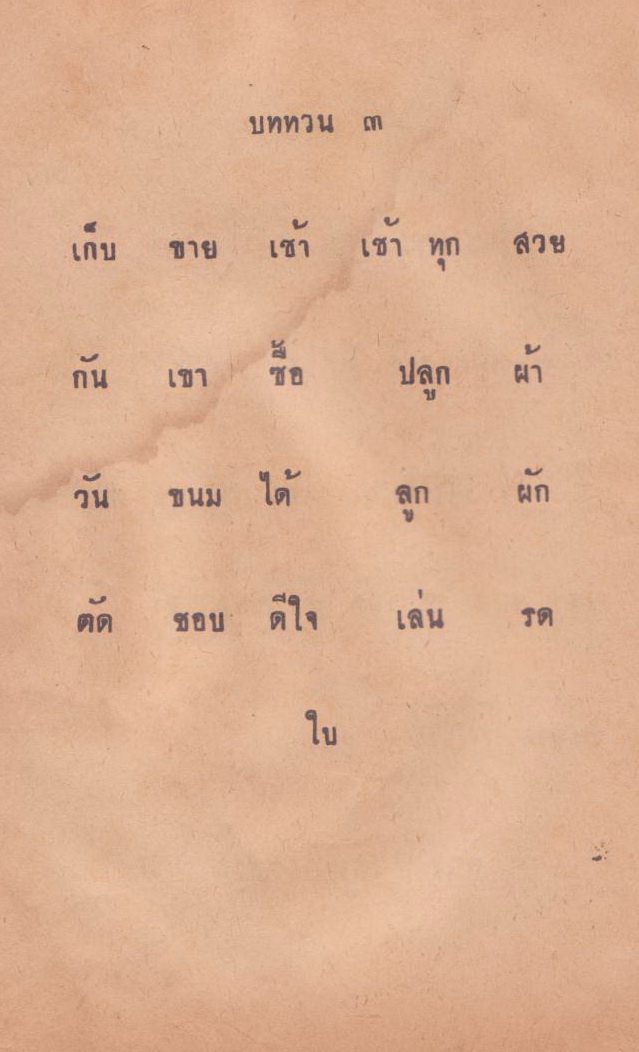 บททวน ๓
เก็บ ขาย เช้า เช้า ทุก สวย
กัน เขา ซื้อ ปลูก ผ้า
วัน ขนม ได้ ลูก ผัก
ตัด ชอบ ดีใจ เล่น รด
ใบ